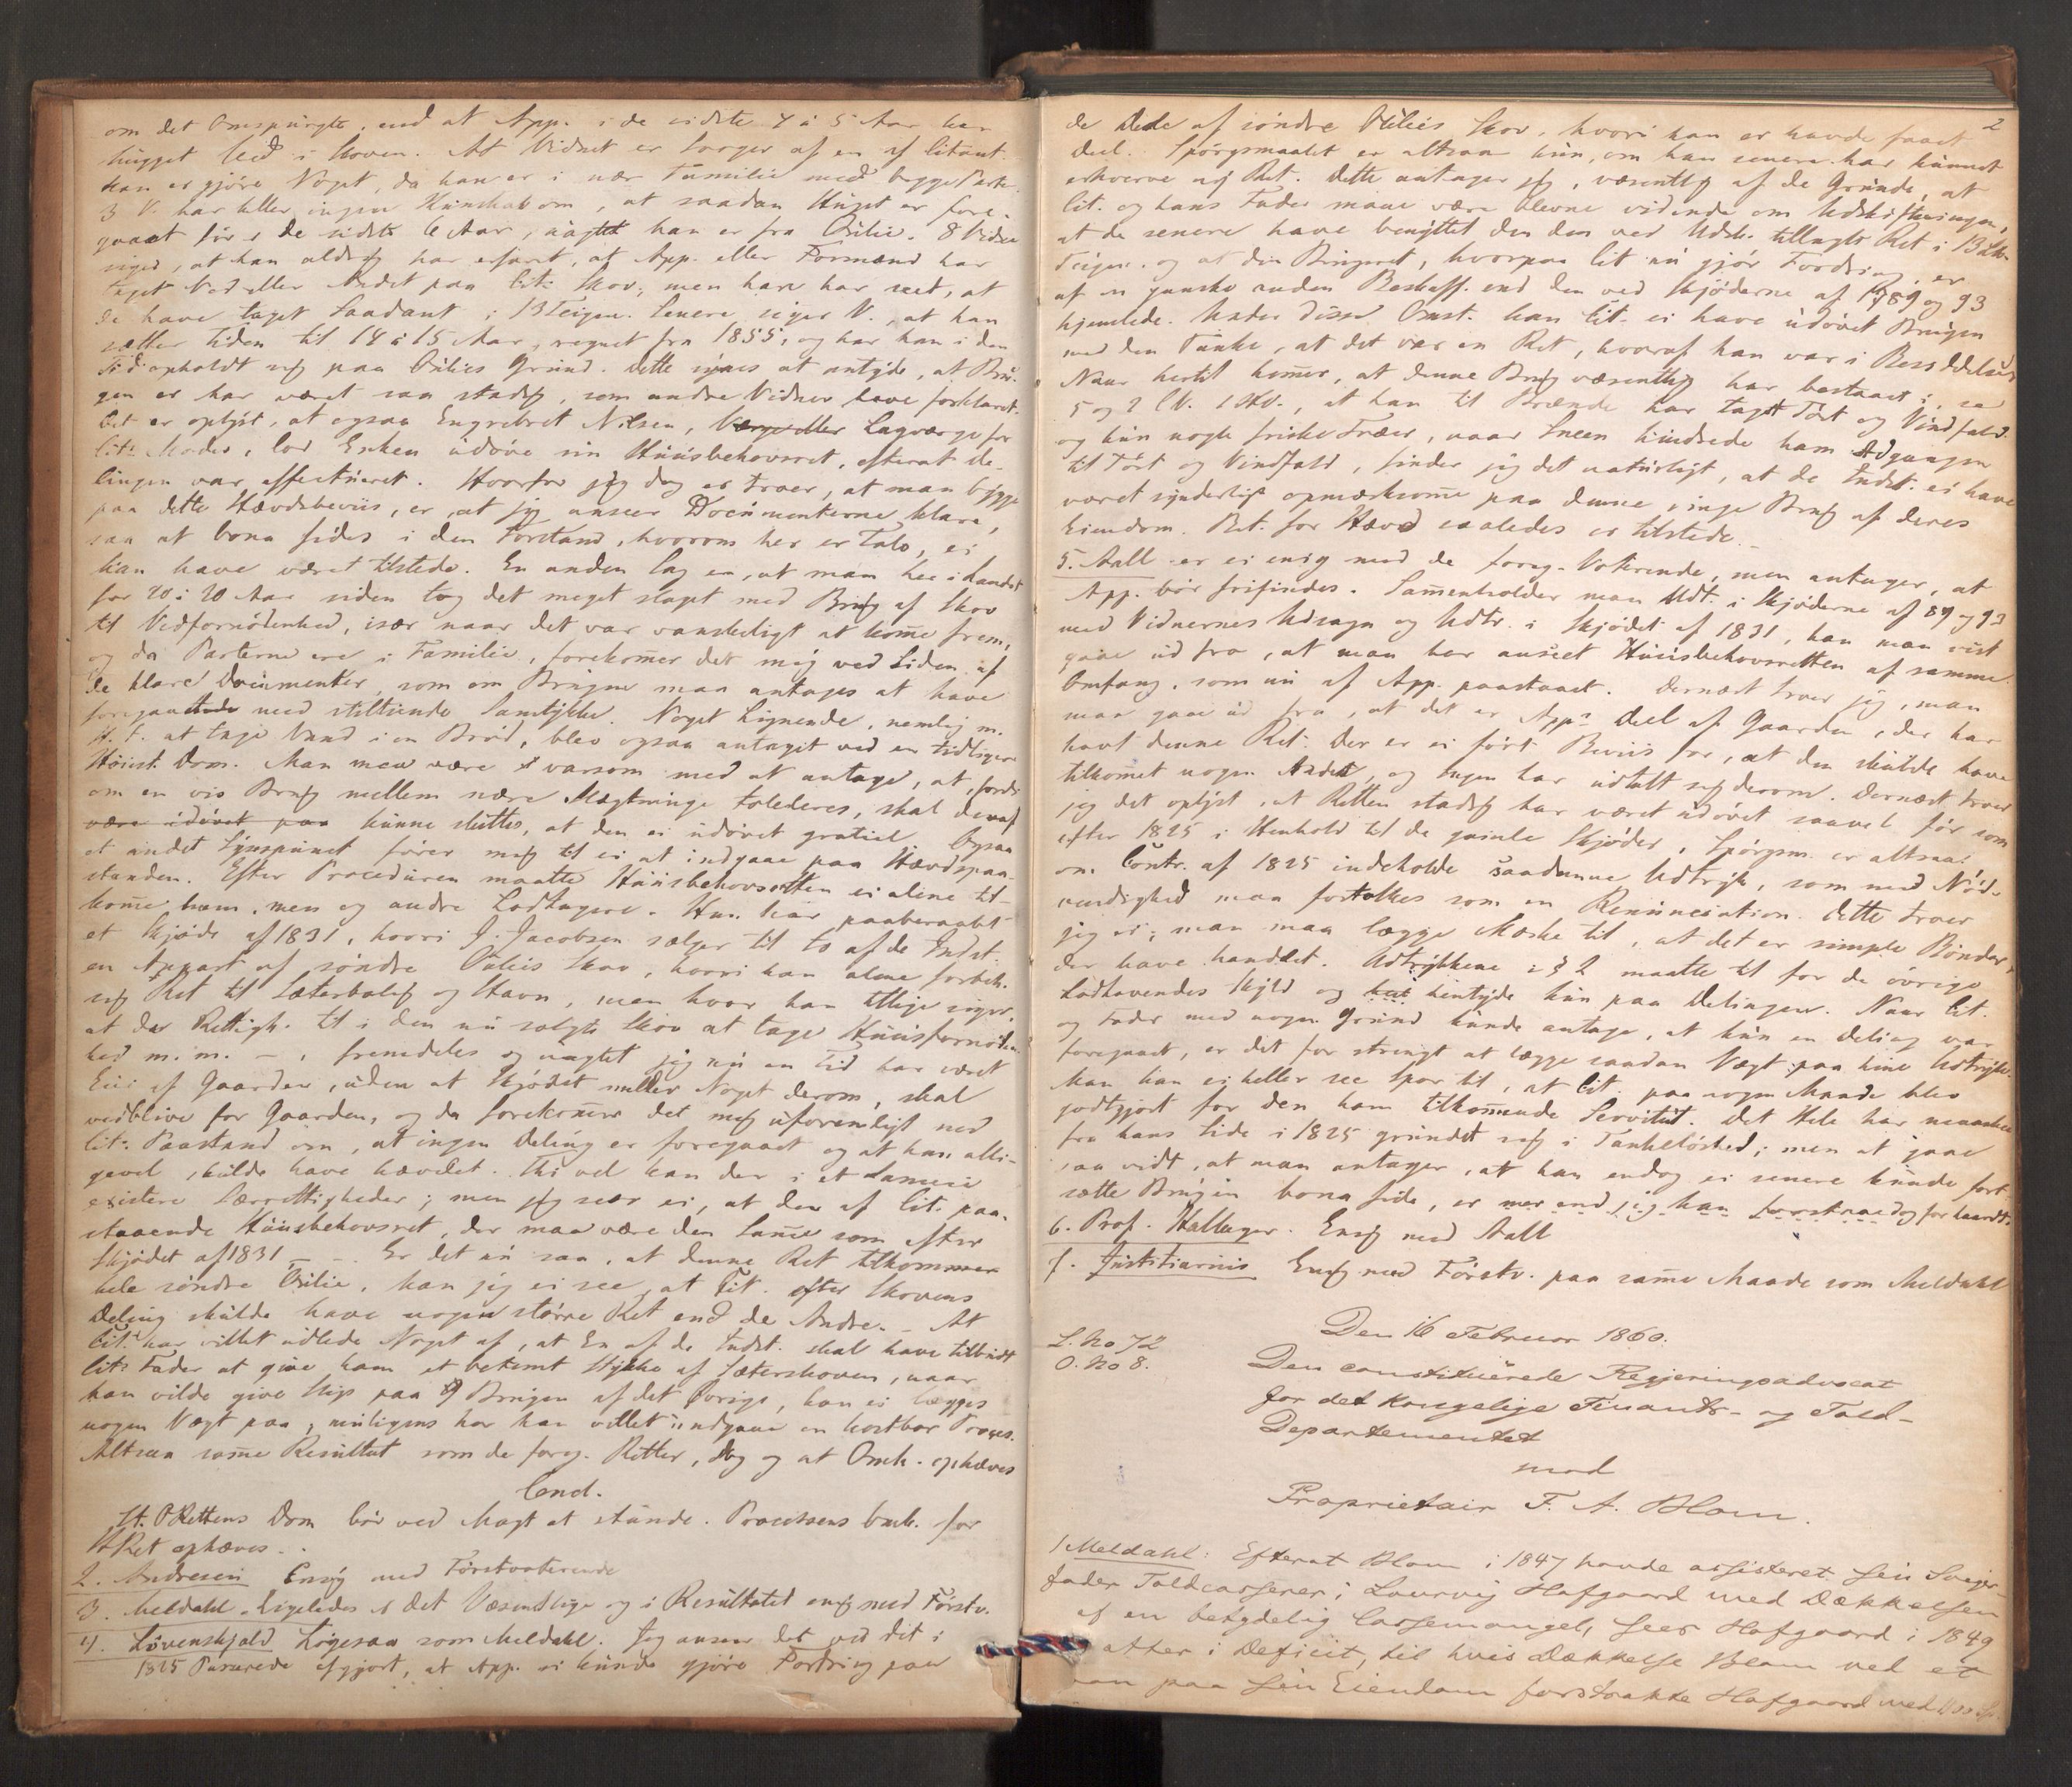 om det Omspurgte, end at App. i de sidste 4 à 5 Aar har
hugget Ved i Skoven. At Vidnet er Sørger af en af Citant.
kan ei gjøre Noget, da han er i nær Familie med begge Parter.
3 V. har heller ingen Kundskab om, at saadan Hugst er fore-
gaaet før i de sidste 6 Aar, uagtet han er fra Oilie. 8 Vidne
siger, at han aldrig har erfaret, at App. eller Formænd har
taget Ved eller Andet paa Cit: Skov, men han har seet, at
de have taget Saadant i 13 Teigen. Senere siger V., at han
sætter Tiden til 14 à 15 Aar, regnet fra 1855, og har han i den
Tid opholdt sig paa Oiliés Grund. Dette synes at antyde, at Bru-
gen ei har været saa stadig, som andre Vidner have forklaret.
Det er oplyst, at ogsaa Engebret Nilsen, Værge eller Lagværge for
Cit: Moder, lod Enken udøve sin Huusbehovsret, efterat De-
lingen var effectueret. Hvorfor jeg dog ei troer, at man bygge
paa dette Hævdsbeviis, er, at jeg anseer Documenterne klare,
saa at bona fides i den Forstand, hvorom her er Tale, ei
kan have været tilstede. En anden Sag er, at man her i Landet
for 20 à 30 Aar siden tog det meget slapt med Brug af Skov
til Vedfornødenhed, især naar det var vanskeligt at komme frem,
og da Parterne ere i Familie, forekommer det mig ved Siden af
de klare Documenter, som om Brugen maa antages at have
foregaaet med stiltiende Samtykke. Noget Lignende, nemlig m.
H. t. at tage Vand i en Brønd, blev ogsaa antaget ved en tidligere
Høiest. Dom. Man maa være varsom med at antage, at, fordi
om en vis Brug mellem nære Slægtninge tolereres, skal deraf
være udøvet paa kunne sluttes, at den ei udøvet gratiel. Ogsaa
et andet Synspunct fører mig til ei at indgaae paa Hævdspaa-
standen. Efter Proceduren maatte Huusbehovsretten ei alene til-
komme ham, men og andre Lodtagere. Han har paaberaabt
et Skjøde af 1831, hvori J. Jacobsen sælger til to af de Indst.
en Appart af søndre Oiliés Skov, hvori han alene forbeh.
sig Ret til Sæterbolig og Havn, men hvor han tillige siger,
at der Rettigh. til i den nu solgte Skov at tage Huusfornøden-
hed m. m. – , fremdeles og uagtet jeg nu en Tid har været
Eier af Gaarden, uden at Skjødet melder Noget derom, skal
vedblive for Gaarden, og da forekommer det mig uforenligt med
Cit: Paastand om, at ingen Deling er foregaaet og at han alli-
gevel skulde have hævdet. Thi vel kan der i et Sameie
existere Særrettigheder; men jeg seer ei, at den af Cit. paa-
staaende Huusbehovsret, der maa være den Samme som efter
Skjødet af 1831 – . Er det nu saa, at denne Ret tilkommer
hele søndre Oilie, kan jeg ei see, at Cit. efter Skovens
Deling skulde have nogen større Ret end de Andre. – At
Cit: har villet udlede Noget af, at En af de Indst. skal have tilbudt
Cit: Fader at give ham et bestemt Stykke af Sæterskoven, naar
han vilde give Slip paa Brugen af det Øvrige, kan ei lægges
nogen Vægt paa; muligens har han villet undgaae en kostbar Proces.
Altsaa samme Resultat som de foreg. Retter, dog og at Omk. ophæves
Cond.
St. O Rettens Dom bør ved Magt at stande. Processens Omk. for
HRet ophæves.
2. Andresen Enig med Førstvoterende
3. Meldahl Ligeledes i det Væsentlige og i Resultatet enig med Førstv.
4. Løvenskjold Ligesaa som Meldahl. Jeg anseer det ved det i
1825 Passerede afgjort, at App. ei kunde gjøre Fordring paa
2
de Dele af søndre Oiliés Skov, hvori han ei havde faaet
Deel. Spørgsmaalet er altsaa kun, om han senere har kunnet
erhverve ny Ret. Dette antager jeg, væsentlig af de Grunde, at
Cit. og hans Fader maae være blevne vidende om Udskiftningen,
at de senere have benyttet den dem ved Udsk. tillagte Ret i 13 Sk.
Teigen, og at den Brugsret, hvorpaa Cit. nu gjør Fordring, er
af en ganske anden Beskaff. end den ved Skjøderne af 1789 og 93
hjemlede. Under disse Omst. kan Cit. ei have udøvet Brugen
med den Tanke, at det var en Ret, hvoraf han var i Besiddelse.
Naar hertil kommer, at denne Brug væsentlig har bestaaet i, se
5 og 2 C V. 1 H V., at han til Brænde har taget Tørt og Vindfald
og kun nogle friske Træer, naar Sneen hindrede ham Adgangen
til Tørt og Vindfald, finder jeg det naturligt, at de Indst. ei have
været synderligt opmærksomme paa denne ringe Brug af deres
Eiendom. Bet. for Hævd saaledes ei tilstede. –
5. Aall er ei enig med de foreg. Voterende, men antager, at
App. bør frifindes. Sammenholder man Udt. i Skjøderne af 89 og 93
med Vidnernes Udsagn og Udtr. i Skjødet af 1831, kan man vist
gaae ud fra, at man har anseet Huusbehovsretten af samme
Omfang, som nu af App. paastaaet. Dernæst troer jeg, man
maa gaae ud fra, at det er App: Deel af Gaarden, der har
havt denne Ret. Der er ei ført Beviis for, at den skulde have
tilkommet nogen Anden, og Ingen har udtalt sig derom. Dernæst troer
jeg det oplyst, at Retten stadig har været udøvet saavel før som
efter 1825 i Henhold til de gamle Skjøder. Spørgsm. er altsaa:
om Contr. af 1825 indeholde saadanne Udtryk, som med Nød-
vendighed maa fortolkes som en Renunciation. Dette troer
jeg ei; man maa lægge Mærke til, at det er simple Bønder,
der have handlet. Udtrykkene i § 2 maatte til for de øvrige
Lodhavendes Skyld og hentyde kun paa Delingen. Naar Cit.
og Fader med nogen Grund kunde antage, at kun en Deling var
foregaaet, er det for strengt at lægge saadan Vægt paa hine Udtrykke.
Man kan ei heller see Spor til, at Cit. paa nogen Maade blev
godtgjort for den ham tilkommende Servitut. Det Hele har maaskee
fra hans Side i 1825 grundet sig i Tankeløshed; men at gaae
saa vidt, at man antager, at han endog ei senere kunde fort-
sætte Brugen bona fide, er mer end jeg kan forstaae dog for haardt.
6. Prof. Hallager. Enig med Aall
7. Justitiarius Enig med Førstv. paa samme Maade som Meldahl
Den 16 Februar 1860.
L. No 72
O. No 8.
Den constituerede Regjeringsadvocat
for det Kongelige Finants- og Told-
Departementet
mod
Proprietair F. A. Blom.
1 Meldahl: Efterat Blom i 1847 havde assisteret sin Sviger-
fader Toldcasserer i Laurvig Hofgaard med Dækkelsen
af en betydelig Cassemangel, sees Hofgaard i 1849
atter i Deficit, til hvis Dækkelse Blom ved et
paa sin Eiendom forstrakte Hofgaard med